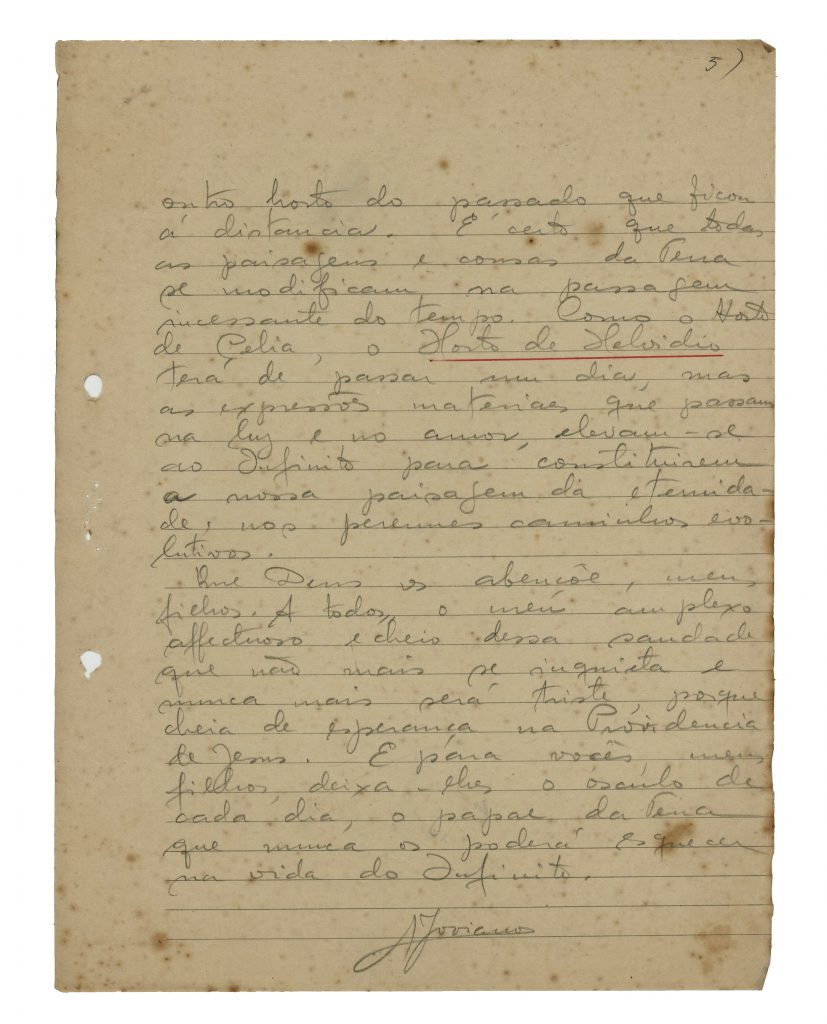 5)
outro horto do passado que ficou
á distancia. É certo que todas
as paisagens e cousas da Terra
se modificam na passagem
incessante do tempo. Como o Horto
de Célia, o Horto de Helvidio
terá de passar um dia, mas
as expressões materiaes que passam
na luz e no amor, elevam-se
ao Infinito para constituirem
a nossa paisagem da eternida-
de, nos perennes caminhos evo-
lutivos.
Que Deus vs abençôe, meus
filhos. A todos, o meu amplexo
affectuoso e cheio dessa saudade
que não mais se inquieta e
nunca mais será triste, porque
cheia de esperança na Providencia
de Jesus. E para vocês, meus
filhos, deixa-lhes o osculo de
cada dia, o papae da Terra
que nunca os poderá esquecer
na vida do Infinito.
A Joviano